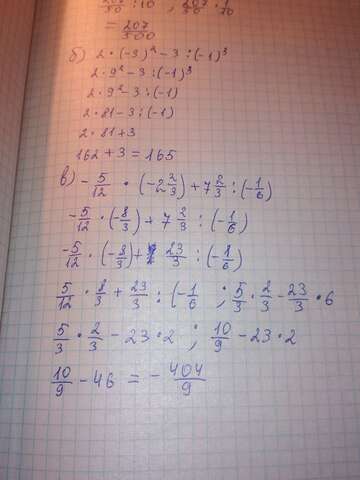 207/50 : 10 ; 207/50 · 1/10
= 207/500
б) 2 · (-3)² - 3 : (-1)³
2 · 9² - 3 : (-1)³
2 · 9² - 3 : (-1)
2 · 81 - 3 : (-1)
2 · 81 + 3
162 + 3 = 165
в) - 5/12 · (-2 2/3) + 7 2/3 : (-1/6)
- 5/12 · (-8/3) + 7 2/3 : (-1/6)
- 5/12 · (-8/3) + 23/3 : (-1/6)
5/12 · 8/3 + 23/3 : (-1/6 ; 5/3 · 2/3 - 23/3 · 6
5/3 · 2/3 - 23 · 2 ; 10/9 - 23 · 2
10/9 - 46 = - 404/9